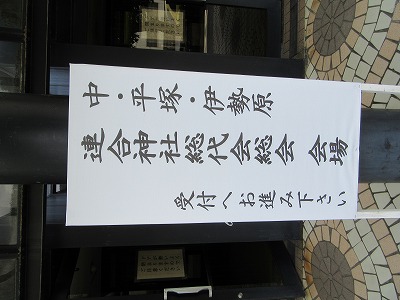 中・平塚・伊勢原
連合神社総代会総会 会場
受付へお進み下さい